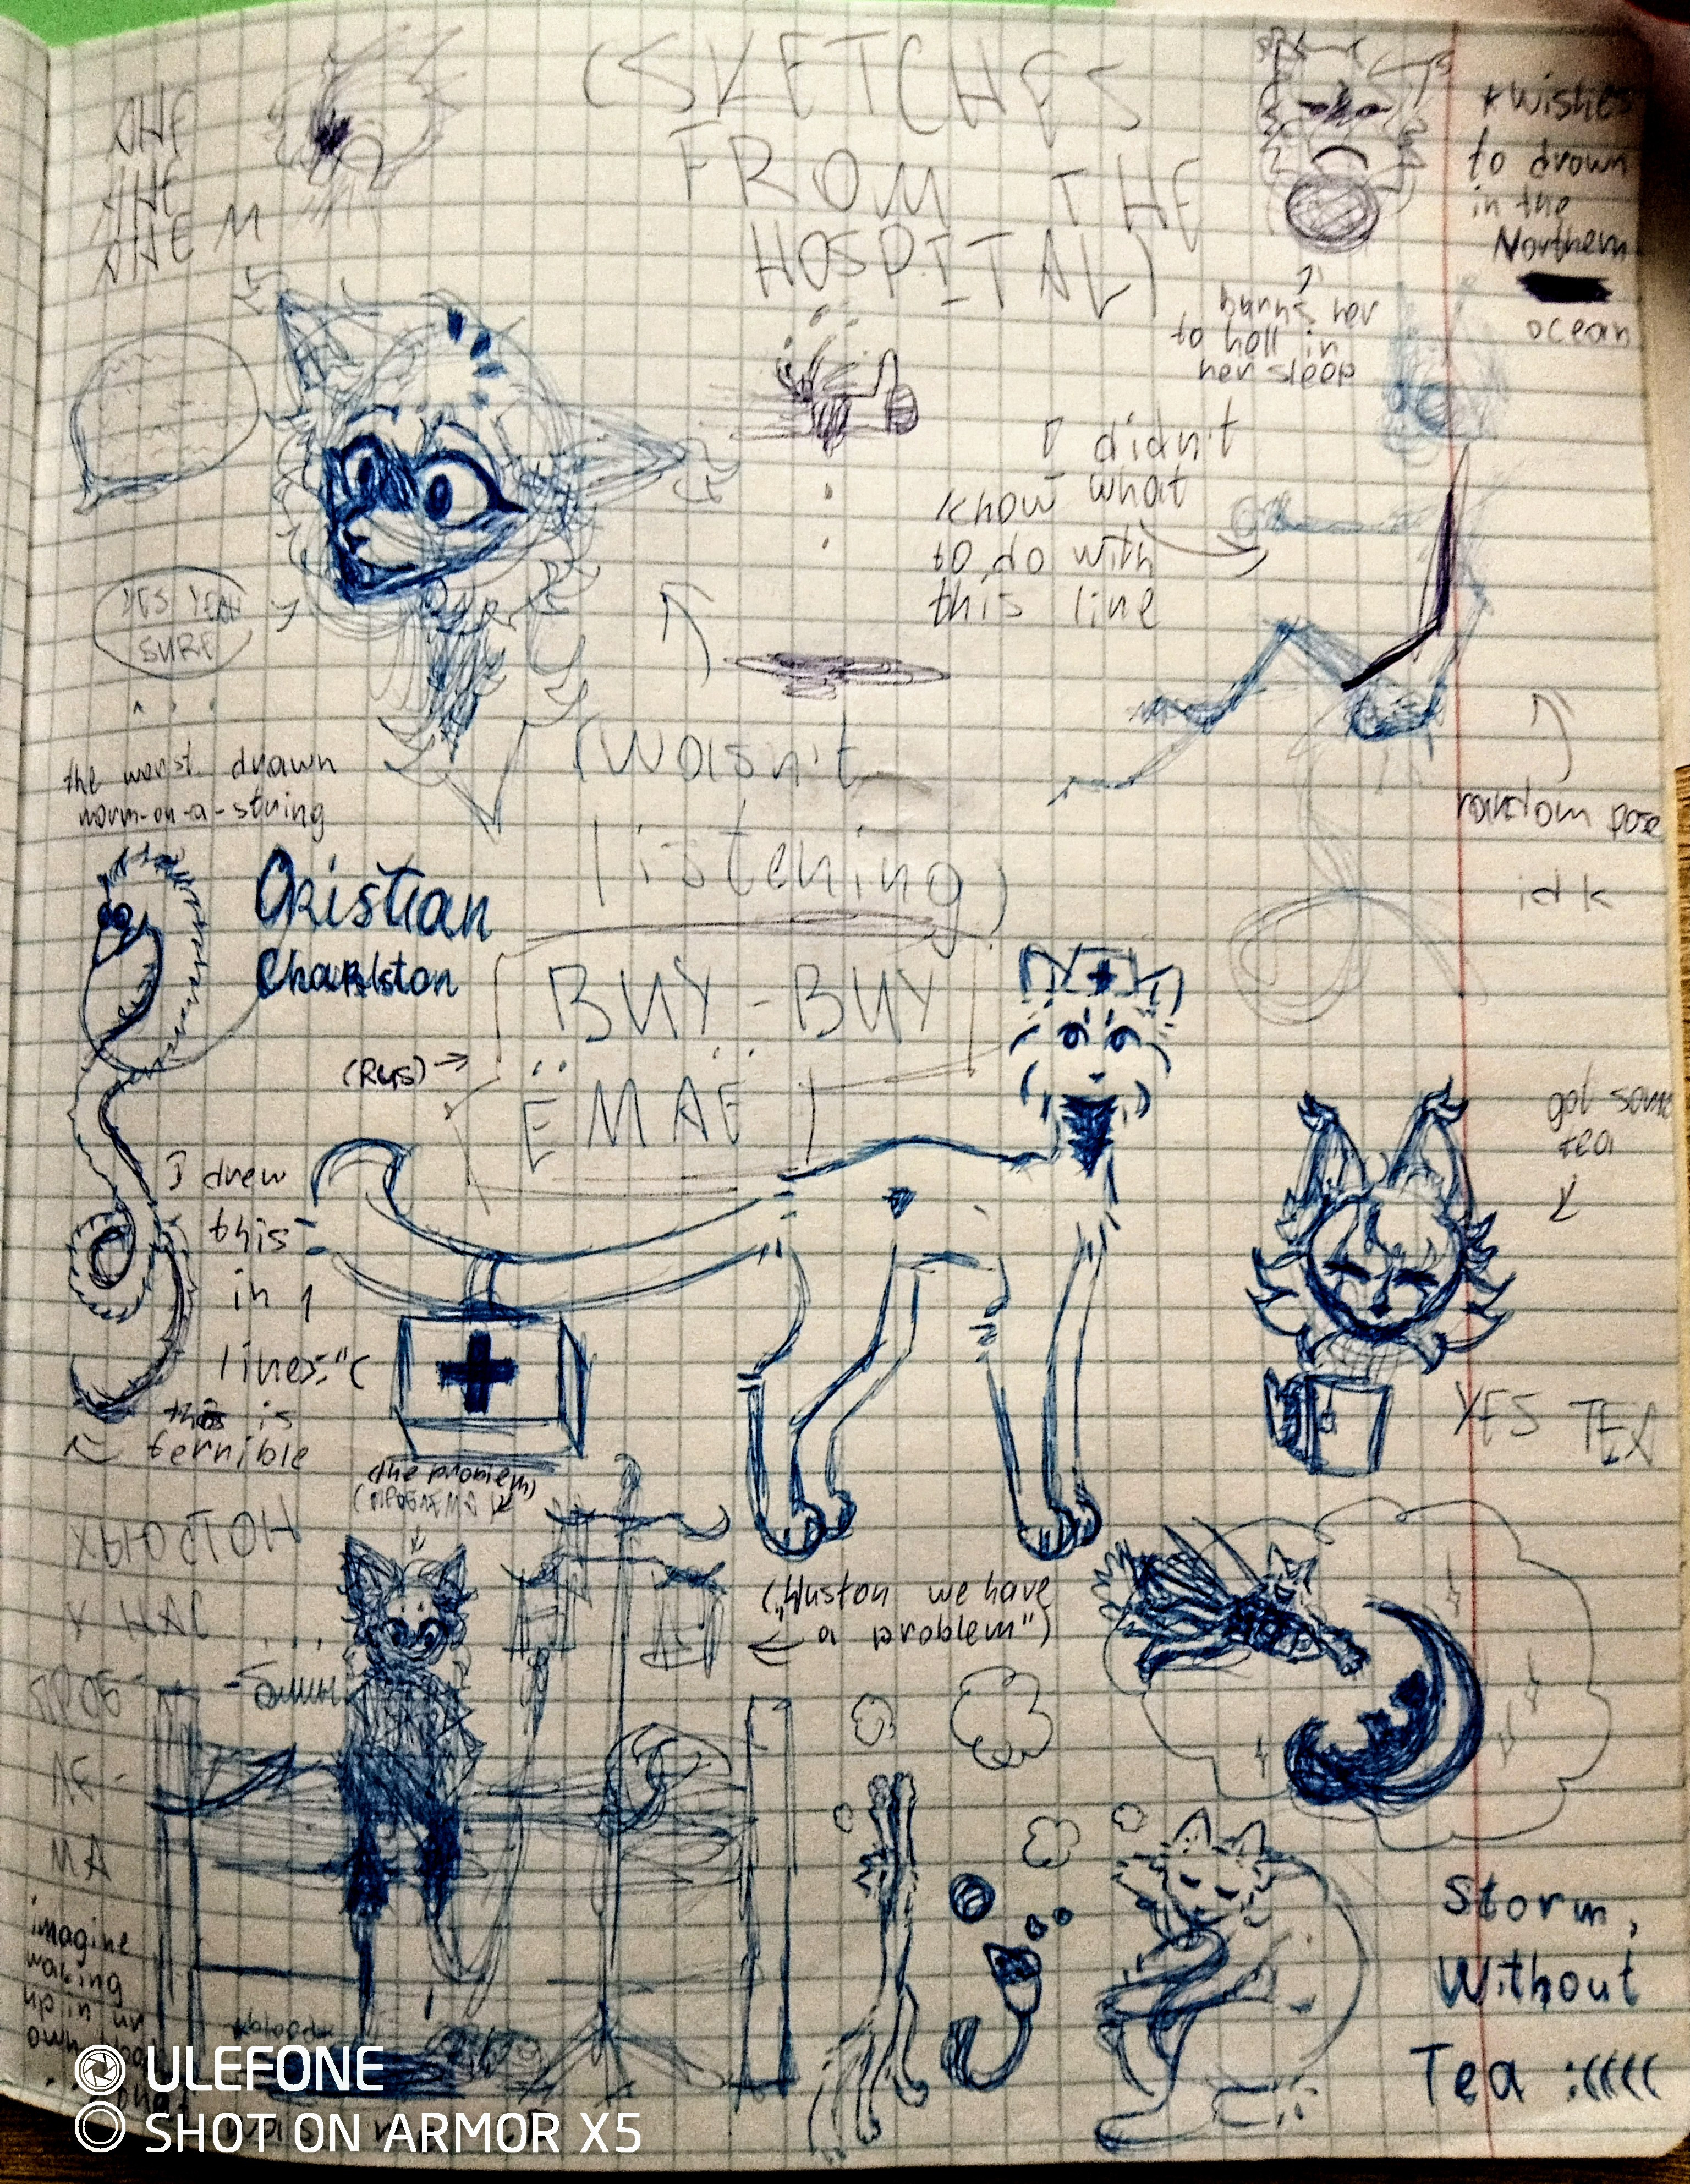 (SKETCHES
FROM THE
HOSPITAL)
*wishes
to drown
in the
Northern
ocean
burns her
to hell in
her sleep
I didn't
know what
to do with
this line
YES YEAH
SURE
random pose
idk
(wasn't
listening)
the worst drawn
worm-on-a-string
Cristian
Charlston
BUY-BUY
(Rus)→
ЁМАЁ
I drew
this
in 1
line:"(
this is
terrible
got some
tea
YES TEA
(the problem)
(ПРОБЛЕМА)
ХЬЮСТОН
У НАС ...
ПРОБ-
ЛЕ-
МА
("Huston we have
a problem")
imagine
waking
up in ur
own
*blood*
Storm,
Without
Tea :((((
ULEFONE
SHOT ON ARMOR X5